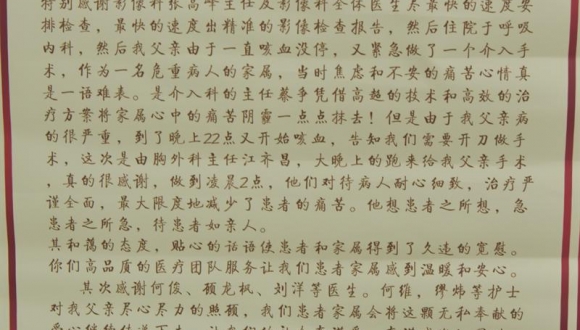 特别感谢影像科张高峰主任及影像科全体医生尽最快的速度安
排检查，最快的速度出精准的影像检查报告，然后住院于呼吸
内科，然后我父亲由于一直咳血没停，又紧急做了一个介入手
术，作为一名危重病人的家属，当时焦虑和不安的痛苦心情真
是一语难表。是介入科的主任蔡争凭借高超的技术和高效的治
疗方案将家属心中的痛苦阴霾一点点抹去！但是由于我父亲病
的很严重，到了晚上22点又开始咳血，告知我们需要开刀做手
术，这次是由胸外科主任江齐昌，大晚上的跑来给我父亲手术
，真的很感谢，做到凌晨2点，他们对待病人耐心细致，治疗严
谨全面，最大限度地减少了患者的痛苦。他想患者之所想，急
患者之所急，待患者如亲人。
其和蔼的态度，贴心的话语使患者和家属得到了久违的宽慰。
你们高品质的医疗团队服务让我们患者家属感到温暖和安心。
其次感谢何俊、顾龙枫、刘洋等医生。何维，缪炜等护士
对我父亲尽心尽力的照顾，我们患者家属会将这颗无私奉献的